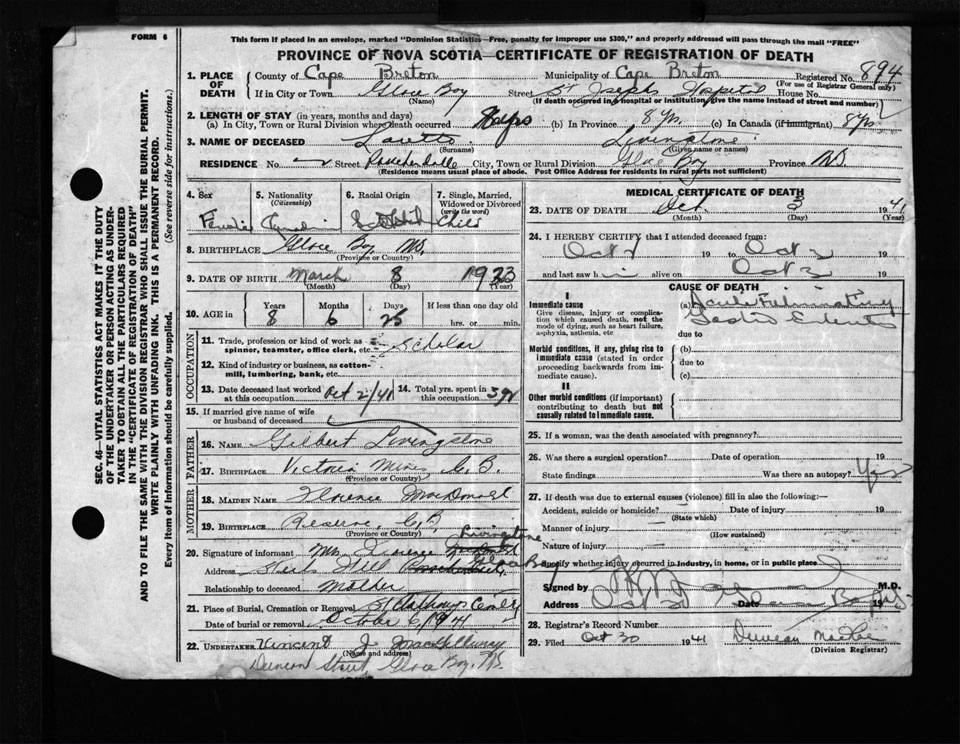 FORM 6
This form if placed in an envelope, marked "Dominion Statistics—Free, penalty for improper use $300," and properly addressed will pass through the mail "FREE"
PROVINCE OF NOVA SCOTIA—CERTIFICATE OF REGISTRATION OF DEATH
1. PLACE OF DEATH
County of Cape Breton Municipality of Cape Breton Registered No. 894
(For use of Registrar General only)
If in City or Town Glace Bay Street St Josephs Hospital House No.
(Name) (If death occurred in hospital or institution, give the name instead of street and number)
2. LENGTH OF STAY (in years, months and days)
(a) In City, Town or Rural Division where death occurred (b) In Province 8 yrs. (c) In Canada (if immigrant) 8 yrs
3. NAME OF DECEASED Livingstone
(Surname) (Given name or names)
RESIDENCE No. Street City, Town or Rural Division Glace Bay Province N.S.
(Residence means usual place of abode. Post Office Address for residents in rural parts not sufficient)
4. Sex
5. Nationality (Citizenship)
6. Racial Origin
7. Single, Married, Widowed or Divorced (write the word)
Female Canadian Scottish Child
8. BIRTHPLACE Glace Bay N.S.
(Province or Country)
9. DATE OF BIRTH March 8 1933
(Month) (Day) (Year)
10. AGE in Years Months Days If less than one day old
8 6 25 hrs. or min.
OCCUPATION
11. Trade, profession or kind of work as spinner, teamster, office clerk, etc. Scholar
12. Kind of industry or business, as cotton-mill, lumbering, bank, etc.
13. Date deceased last worked at this occupation Oct 2/41
14. Total yrs. spent in this occupation 3 yrs
15. If married give name of wife or husband of deceased
FATHER
16. NAME Gilbert Livingstone
17. BIRTHPLACE Victoria Mines C.B.
(Province or Country)
MOTHER
18. MAIDEN NAME Florence MacDonald
19. BIRTHPLACE Reserve, C.B.
(Province or Country)
Livingstone
20. Signature of informant Mrs. Florence
Address Hill Glace Bay
Relationship to deceased Mother
21. Place of Burial, Cremation or Removal St Anthonys Cemetery
Date of burial or removal October 6, 1941
22. UNDERTAKER Vincent J.
(Name and address)
Duncan Street, Glace Bay, N.S.
MEDICAL CERTIFICATE OF DEATH
23. DATE OF DEATH Oct. 3 1941
(Month) (Day)
24. I HEREBY CERTIFY that I attended deceased from
Oct 19 to Oct 3 19
and last saw h alive on Oct 3 19
CAUSE OF DEATH
I
Immediate cause
Give disease, injury or complication which caused death, not the mode of dying, such as heart failure, asphyxia, asthenia, etc
(a) Acute Fulminating
Gastro Enteritis
due to
Morbid conditions, if any, giving rise to immediate cause (stated in order proceeding backwards from immediate cause).
(b)
due to
(c)
II
Other morbid conditions (if important) contributing to death but not causally related to immediate cause.
25. If a woman, was the death associated with pregnancy?
26. Was there a surgical operation? Date of operation 19
State findings Was there an autopsy? Yes
27. If death was due to external causes (violence) fill in also the following:—
Accident, suicide or homicide? Date of injury 19
(State which)
Manner of injury
(How sustained)
Nature of injury
Specify whether injury occurred in industry, in home, or in public place
Signed by M.D.
Address Date 19
28. Registrar's Record Number
29. Filed Oct 30 1941 Duncan
(Division Registrar)
SEC. 46—VITAL STATISTICS ACT MAKES IT THE DUTY
OF THE UNDERTAKER OR PERSON ACTING AS UNDER-
TAKER TO OBTAIN ALL THE PARTICULARS REQUIRED
IN THE "CERTIFICATE OF REGISTRATION OF DEATH"
AND TO FILE THE SAME WITH THE DIVISION REGISTRAR WHO SHALL ISSUE THE BURIAL PERMIT.
WRITE PLAINLY WITH UNFADING INK. THIS IS A PERMANENT RECORD.
Every item of information should be carefully supplied. (See reverse side for instructions.)